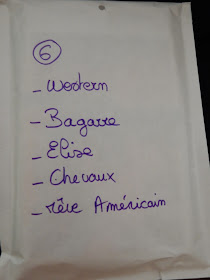 6
- Western
- Bagarre
- Elise
- Chevaux
- rêve Américain